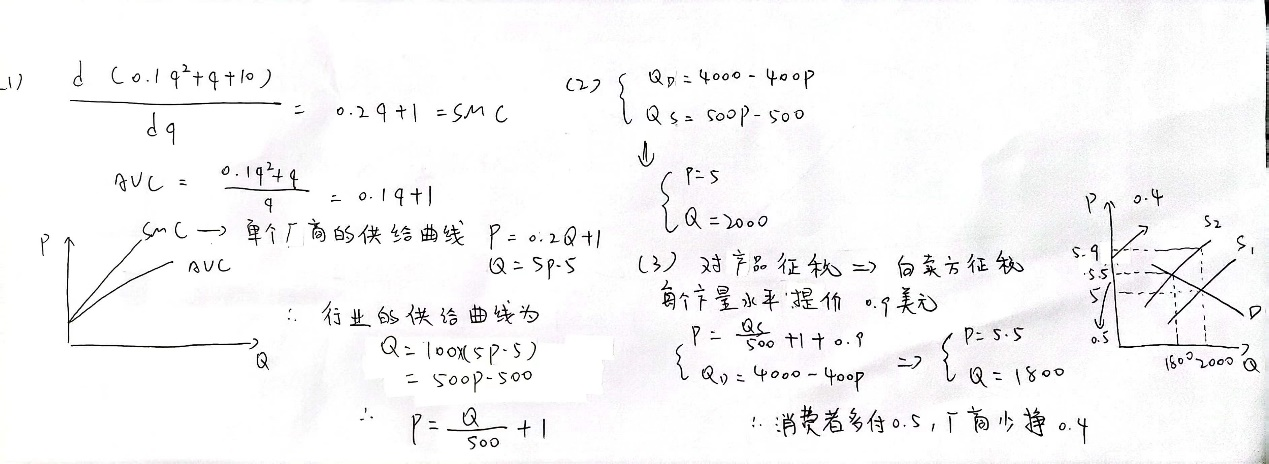 (1) d (0.1q²+q+10) / dq = 0.2q+1 = SMC
AVC = (0.1q²+q) / q = 0.1q+1
P
SMC → 单个厂商的供给曲线 P=0.2Q+1
AVC
Q=5P-5
Q
∴ 行业的供给曲线为
Q=100×(5P-5)
= 500P-500
∴ P = Q/500 + 1
(2) { QD = 4000-400P
QS = 500P-500
↓
{ P=5
Q=2000
(3) 对产品征税 => 向卖方征税
每个产量水平提价 0.9美元
{ P = QS/500 +1+0.9
QD = 4000-400P
=> { P=5.5
Q=1800
∴ 消费者多付0.5,厂商少挣0.4
P 0.4
S2
S1
5.9
5.5
5
0.5
D
1800 2000 Q